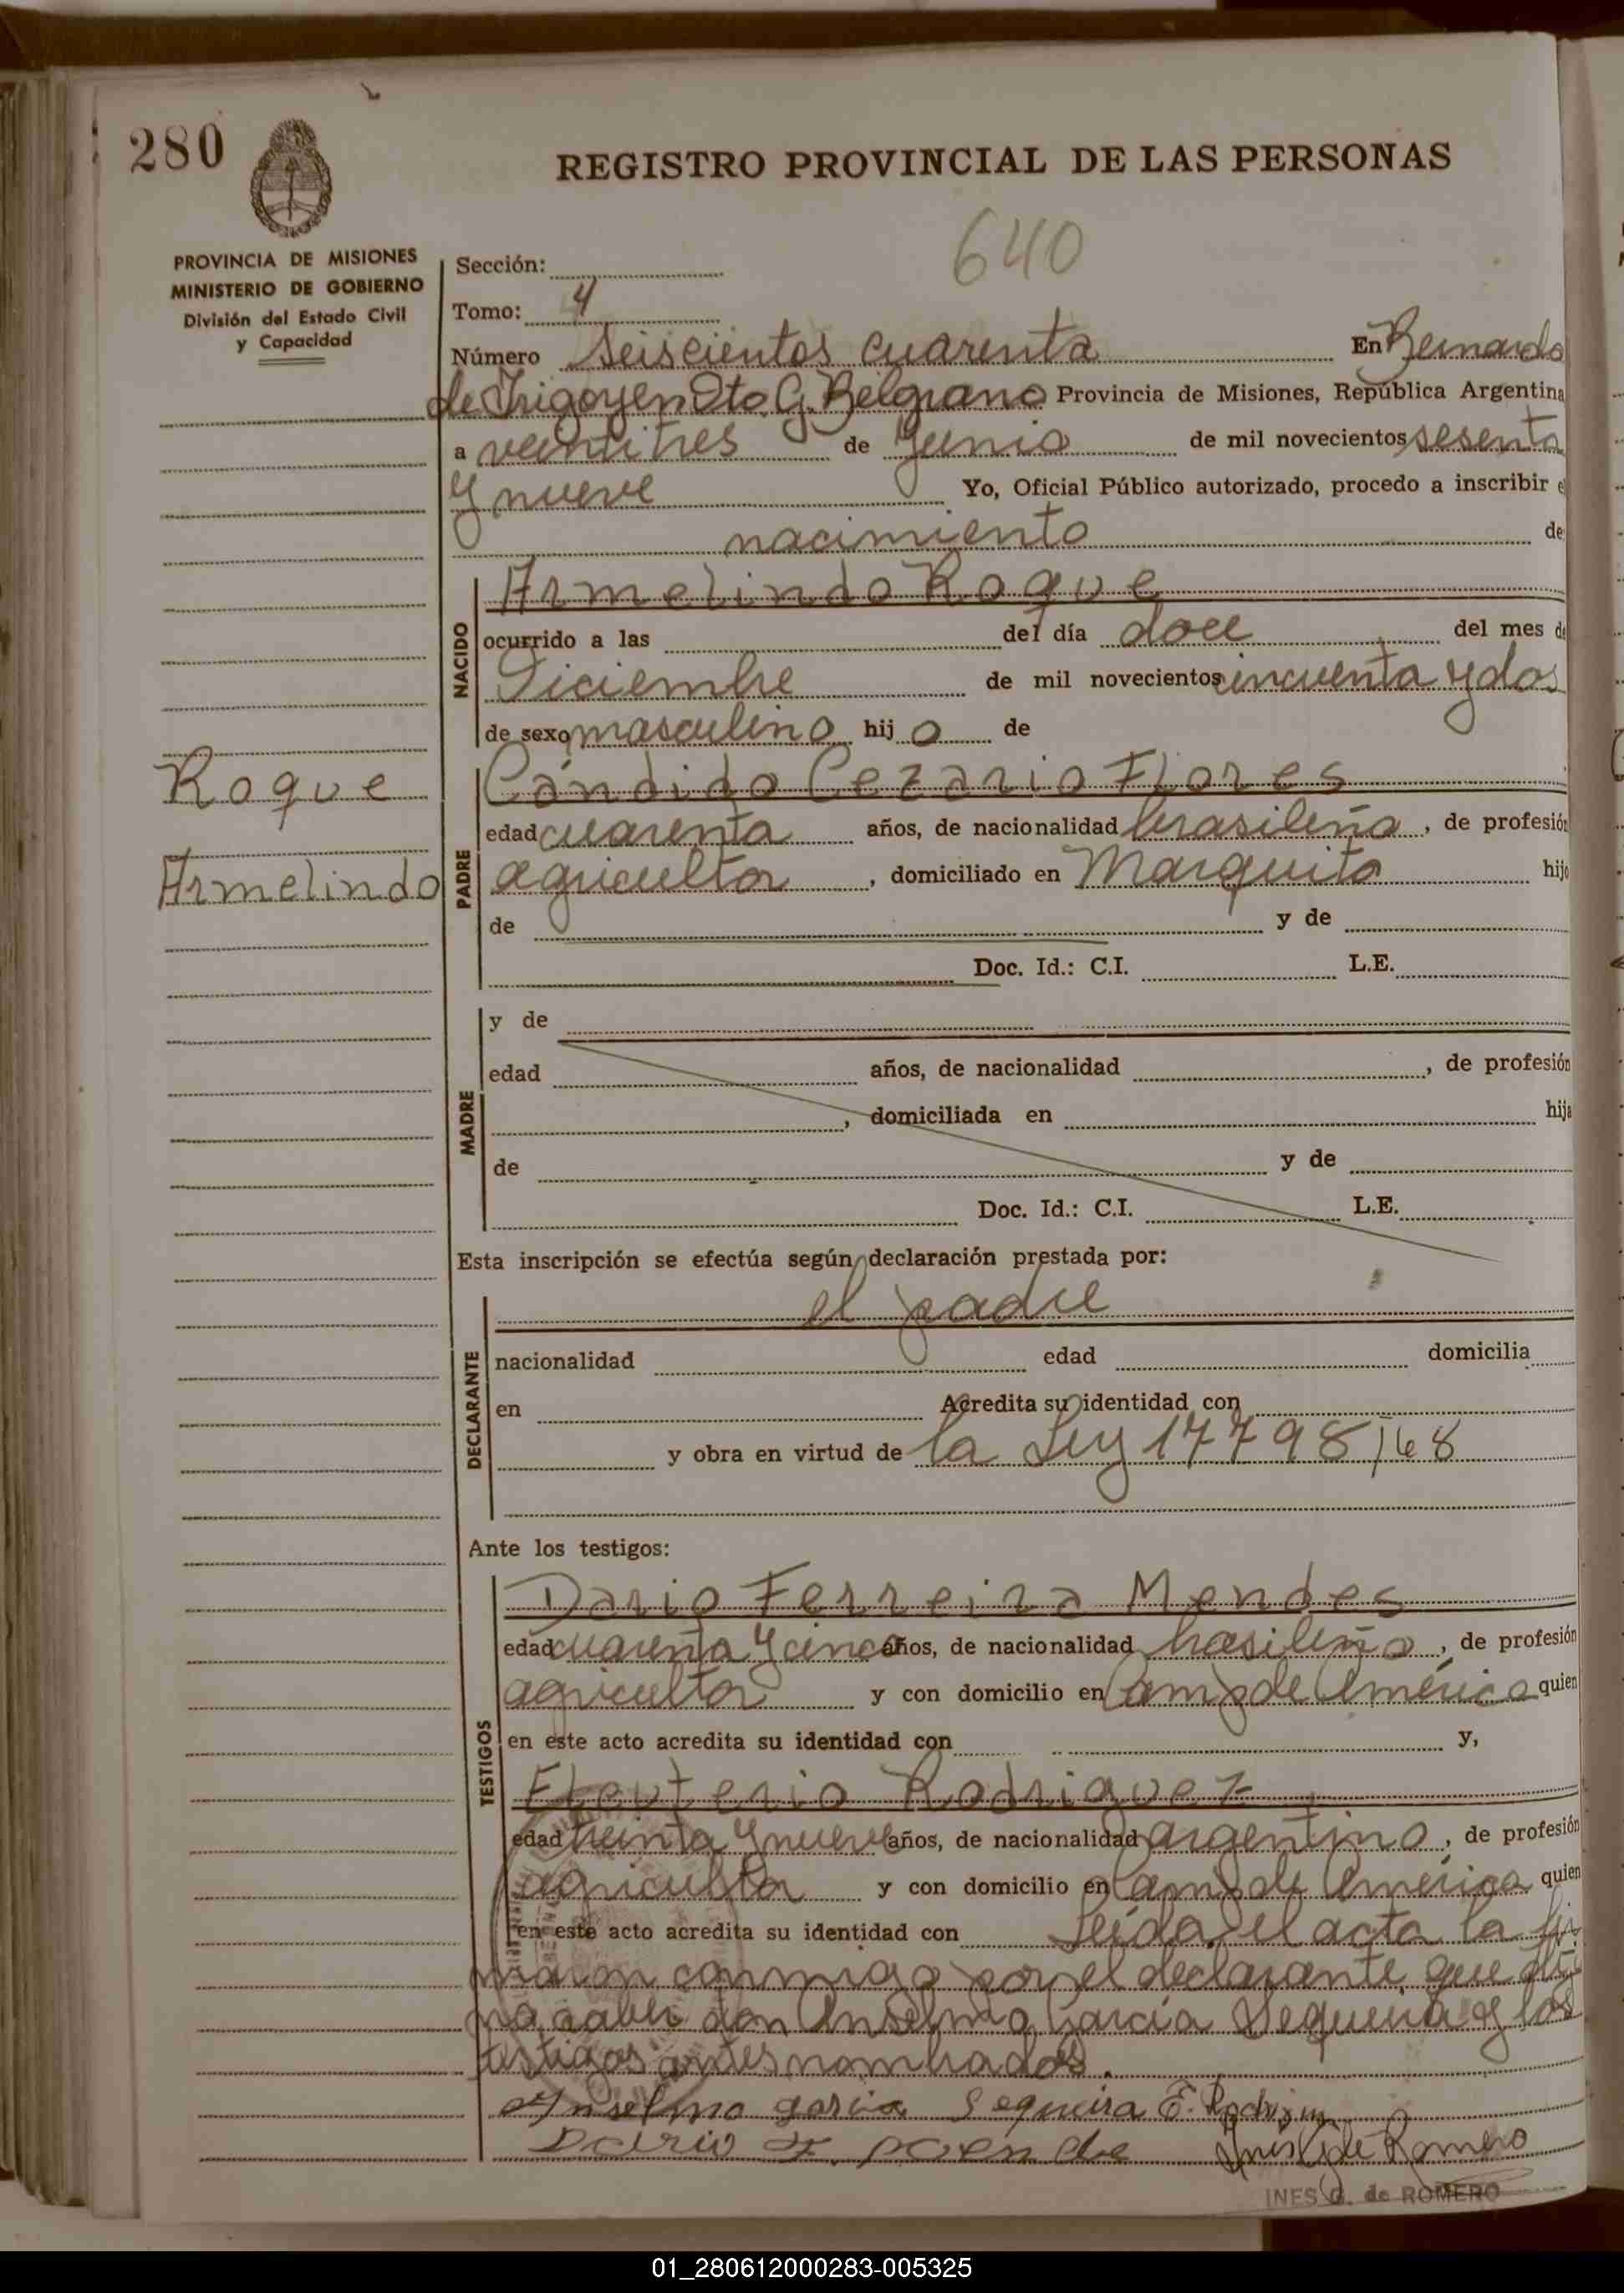 280
REGISTRO PROVINCIAL DE LAS PERSONAS
640
PROVINCIA DE MISIONES
MINISTERIO DE GOBIERNO
División del Estado Civil
y Capacidad
Sección:
Tomo: 4
Número Seiscientos cuarenta En Bernardo
de Irigoyen Dto. G. Belgrano Provincia de Misiones, República Argentina
a veintitres de Junio de mil novecientos sesenta
y nueve Yo, Oficial Público autorizado, procedo a inscribir e
nacimiento de
NACIDO
Armelindo Roque
ocurrido a las del día doce del mes de
Diciembre de mil novecientos cincuenta y dos
de sexo masculino hij o de
Roque
Armelindo
PADRE
Cándido Cezario Flores
edad cuarenta años, de nacionalidad brasileña, de profesión
agricultor, domiciliado en Marquito hijo
de y de
Doc. Id.: C.I. L.E.
MADRE
y de
edad años, de nacionalidad , de profesión
, domiciliada en hija
de y de
Doc. Id.: C.I. L.E.
Esta inscripción se efectúa según declaración prestada por:
DECLARANTE
el padre
nacionalidad edad domicilia
en Acredita su identidad con
y obra en virtud de la Ley 17798/68
Ante los testigos:
TESTIGOS
Dario Ferreira Mendes
edad cuarenta y cinco años, de nacionalidad brasileña, de profesión
agricultor y con domicilio en Campo de América quien
en este acto acredita su identidad con y,
Eleuterio Rodriguez
edad treinta y nueve años, de nacionalidad argentino, de profesión
agricultor y con domicilio en Campo de América quien
en este acto acredita su identidad con Leída el acta la fir
maron conmigo por el declarante que
no saber don Anselmo García Sequeira y los
testigos antes nombrados.
Anselmo garcia Sequeira E. Rodriguez
Dario F. Inés G. de Romero
INES G. de ROMERO
01_280612000283-005325